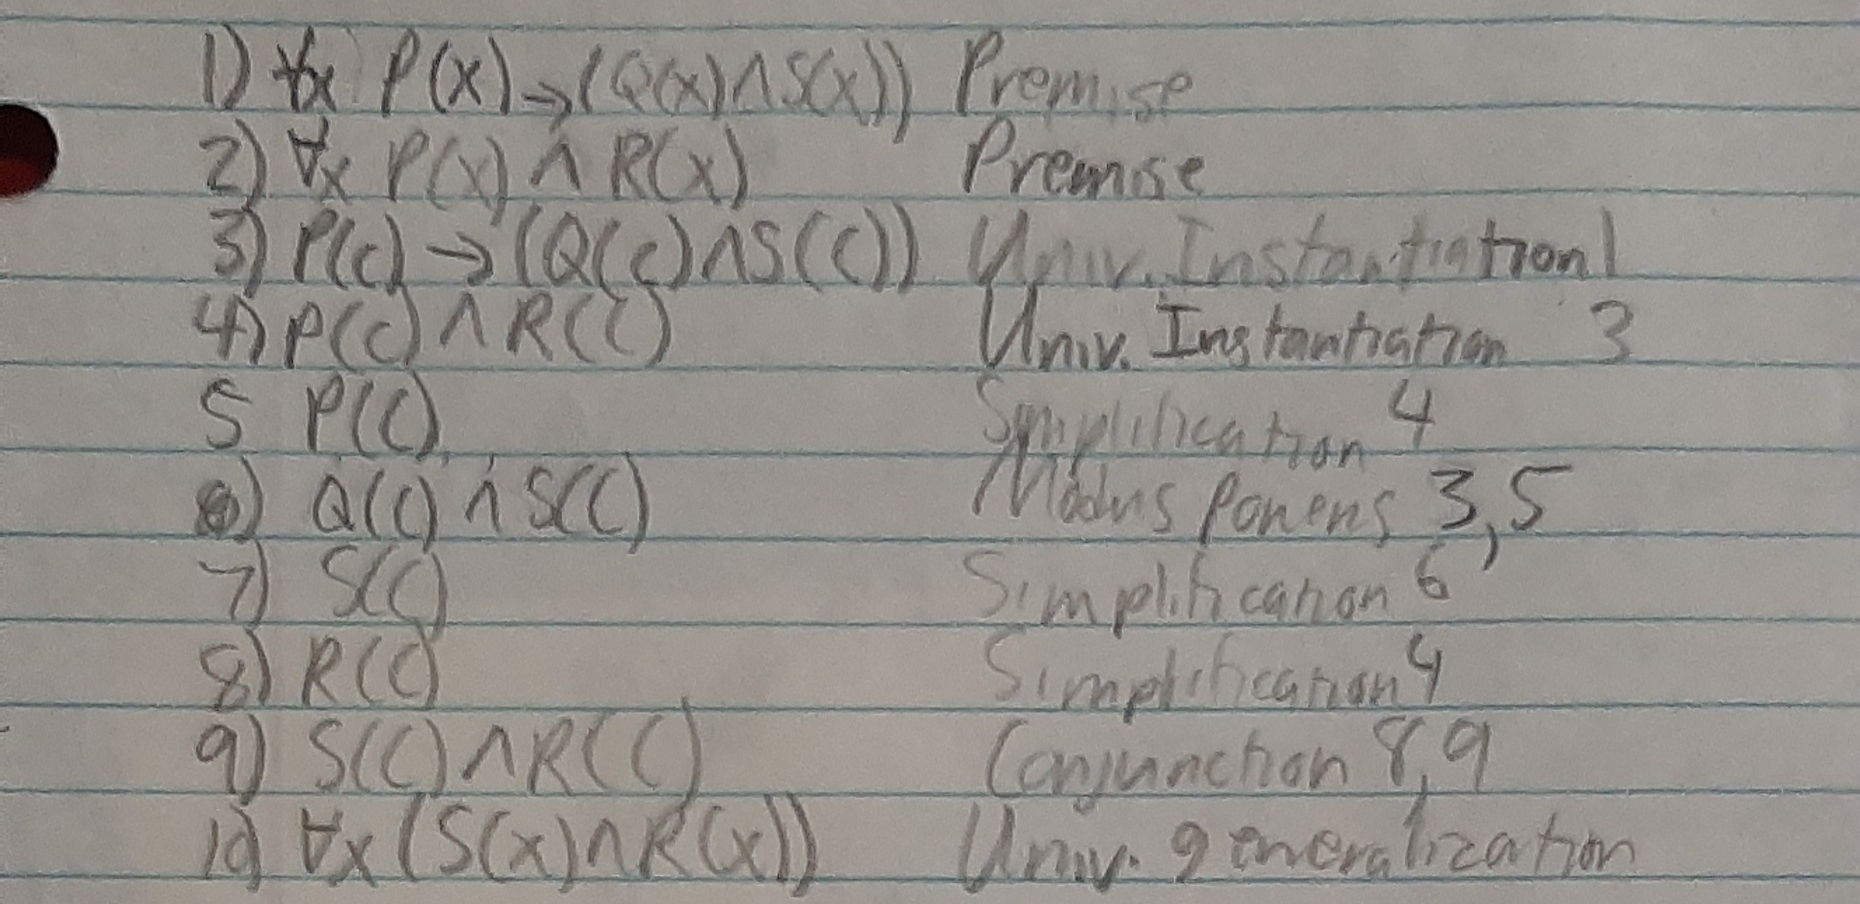 1) ∀x P(x) → (Q(x) ∧ S(x)) Premise
2) ∀x P(x) ∧ R(x) Premise
3) P(c) → (Q(c) ∧ S(c)) Univ. Instantiation 1
4) P(c) ∧ R(c) Univ. Instantiation 3
5 P(c) Simplification 4
6) Q(c) ∧ S(c) Modus Ponens 3,5
7) S(c) Simplification 6
8) R(c) Simplification 4
9) S(c) ∧ R(c) Conjunction 8,9
10) ∀x (S(x) ∧ R(x)) Univ. generalization